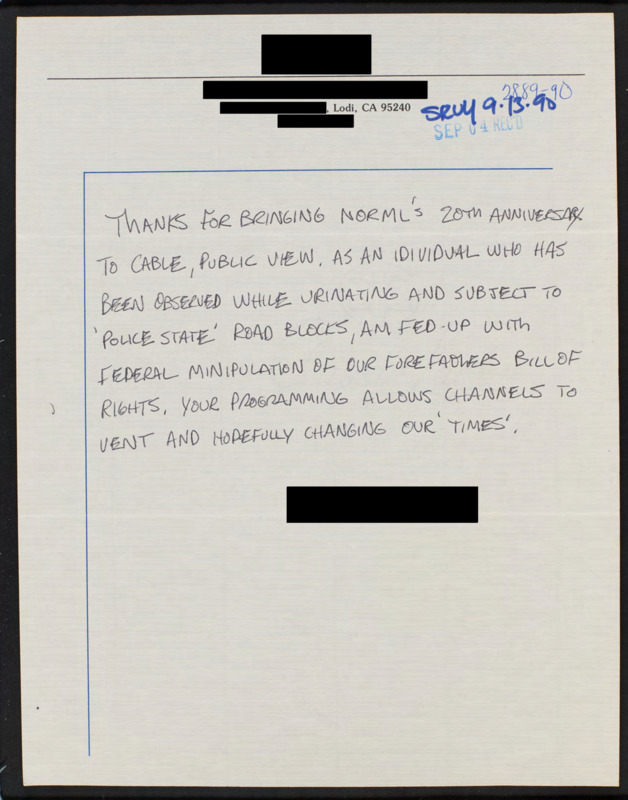 , Lodi, CA 95240
2889-90
SRVY 9.13.90
SEP 04 REC'D
THANKS FOR BRINGING NORML'S 20TH ANNIVERSARY
TO CABLE, PUBLIC VIEW. AS AN IDIVIDUAL WHO HAS
BEEN OBSERVED WHILE URINATING AND SUBJECT TO
'POLICE STATE' ROAD BLOCKS, AM FED-UP WITH
FEDERAL MINIPULATION OF OUR FOREFATHERS BILL OF
RIGHTS. YOUR PROGRAMMING ALLOWS CHANNELS TO
VENT AND HOPEFULLY CHANGING OUR 'TIMES'.